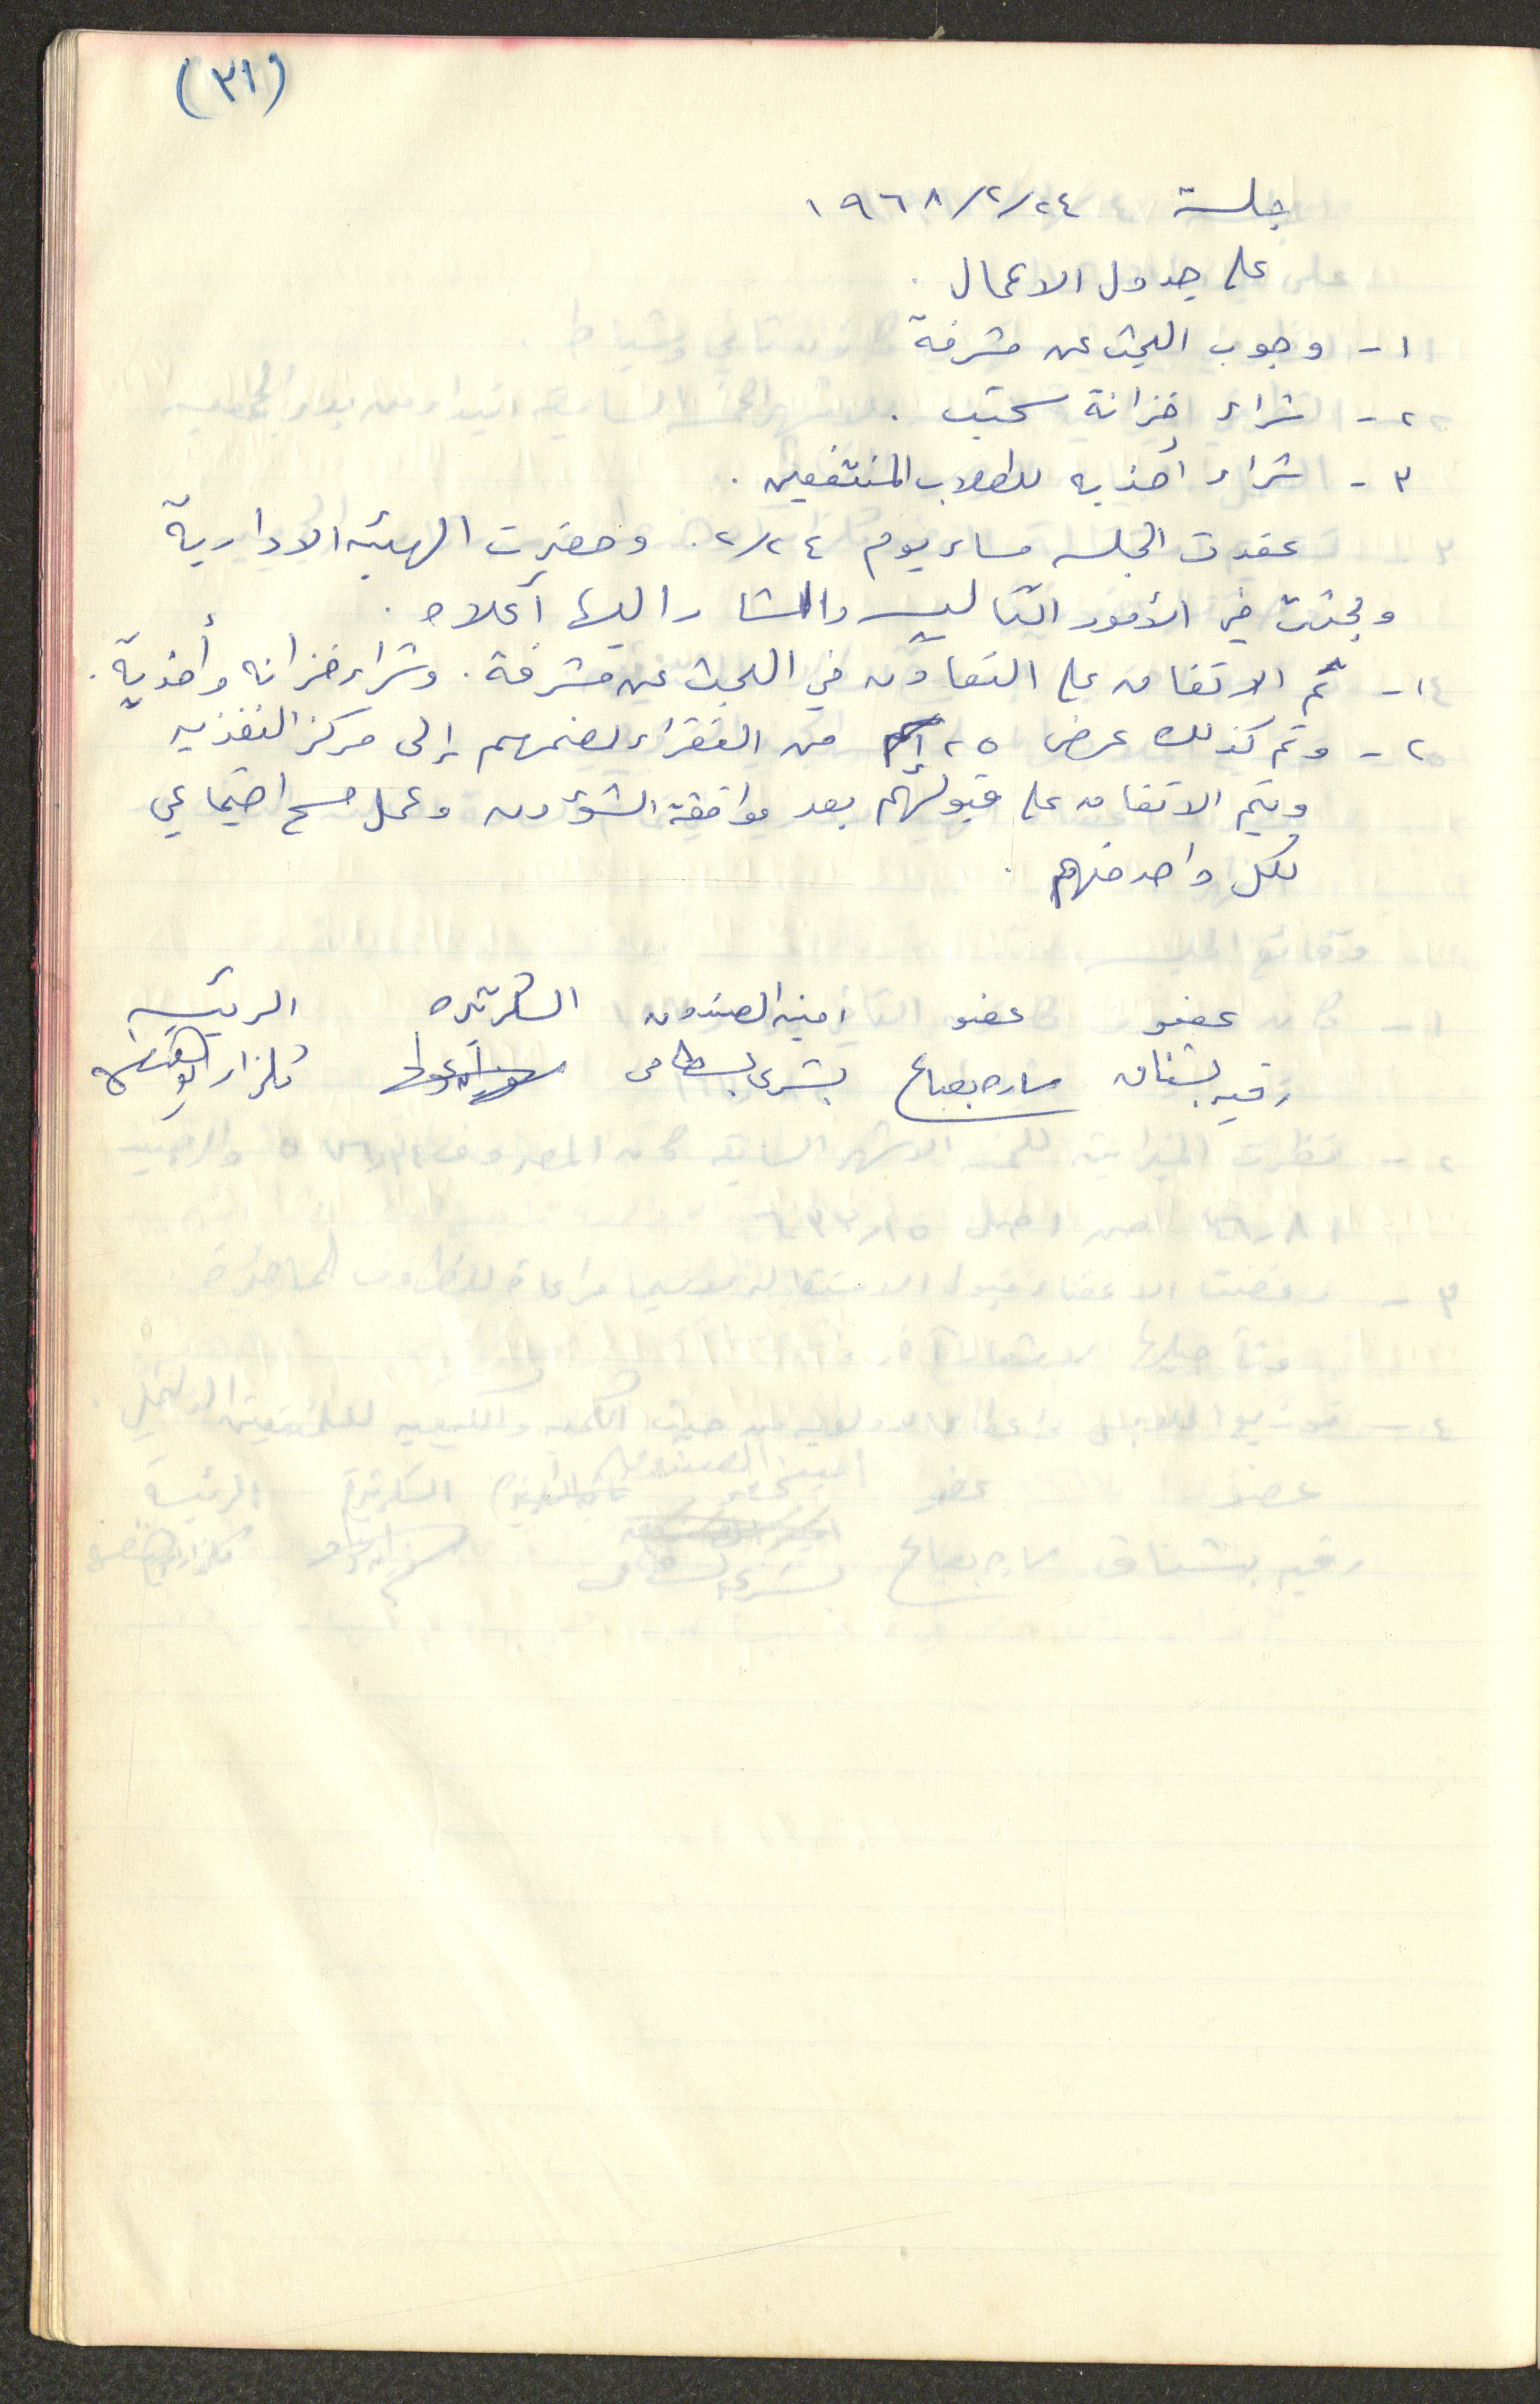 (٣١)
جلسة ٢٤/٢/١٩٦٨
على جدول الاعمال .
١- وجوب البحث عن مشرفة
٢- شراء خزانة كتب .
٣- شراء أحذيه للطلاب المنتفعين .
عقدت الجلسه مساء يوم ٢٤/٢ . وحضرت الهيئه الادارية
وبحثت في الأمور التاليه والمشار اليها أعلاه .
١- تم الاتفاق على التعاون في البحث عن مشرفة . وشراء خزانه وأحذية .
٢- وتم كذلك عرض ٢٥ من الفقراء لضمهم إلى مركز التغذيه
ويتم الاتفاق على قبولهم بعد موافقة الشؤون وعمل مسح اجتماعي
لكل واحد منهم .
عضو عضو امينه الصندوق السكرتيره الرئيسه
رقيه بشناق ساره بعباع بشرى بسطامي